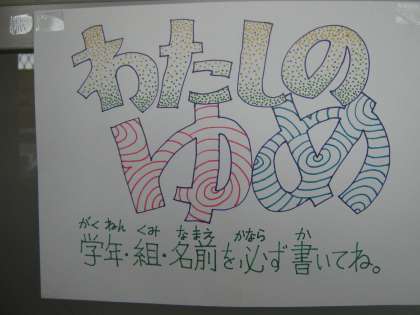 わたしの
ゆめ
がくねん くみ なまえ かなら か
学年・組・名前を必ず書いてね。